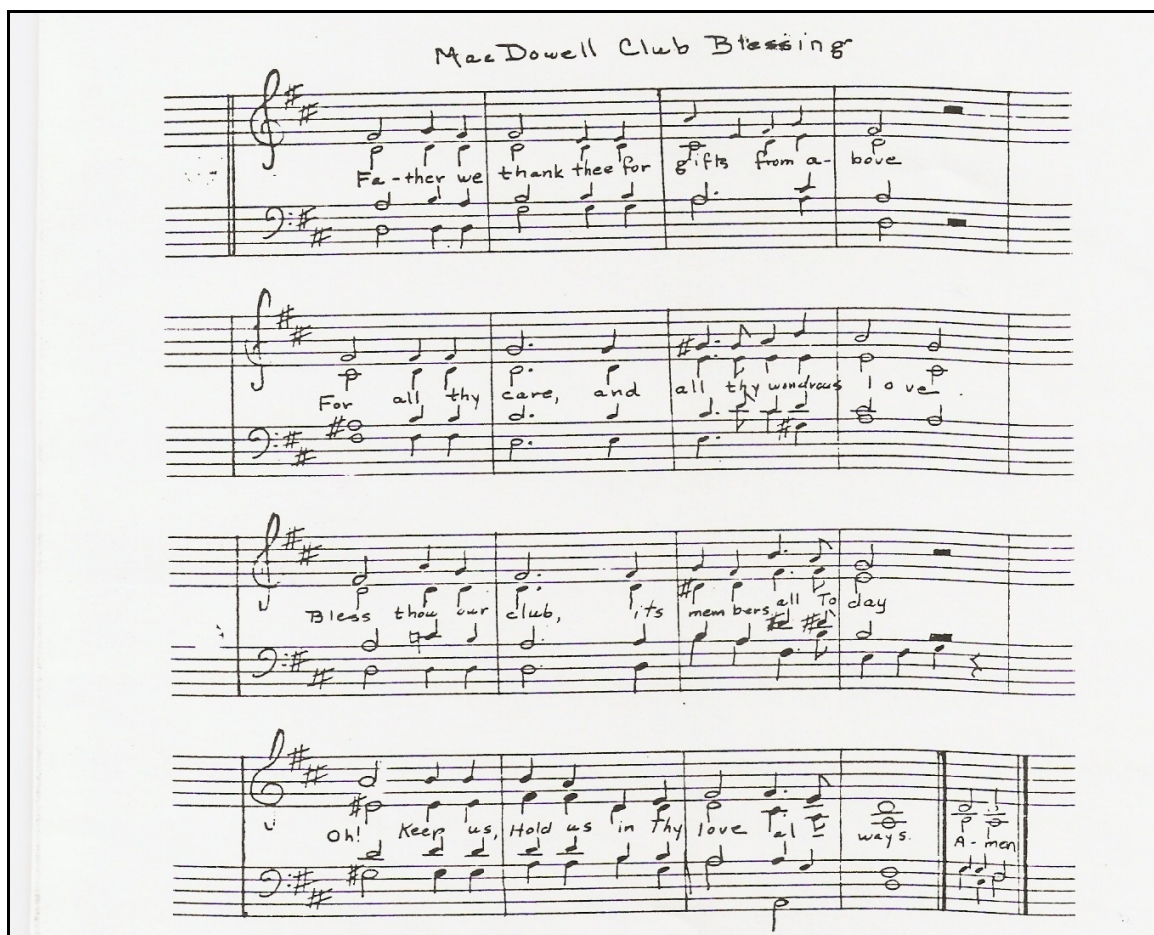 MacDowell Club Blessing
Fa-ther we thank thee for gifts from a-bove
For all thy care, and all thy wondrous love
Bless thou our club, its mem bers all To day
Oh! Keep us, Hold us in Thy love al ways.
A-men